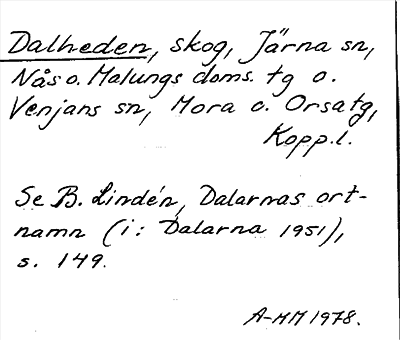 Dalheden, skog, Järna sn,
Nås o. Malungs doms. tg o.
Venjans sn, Mora o. Orsa tg,
Kopp. l.
Se B. Lindén, Dalarnas ort-
namn (i: Dalarna 1951),
s. 149.
A-MM 1978.